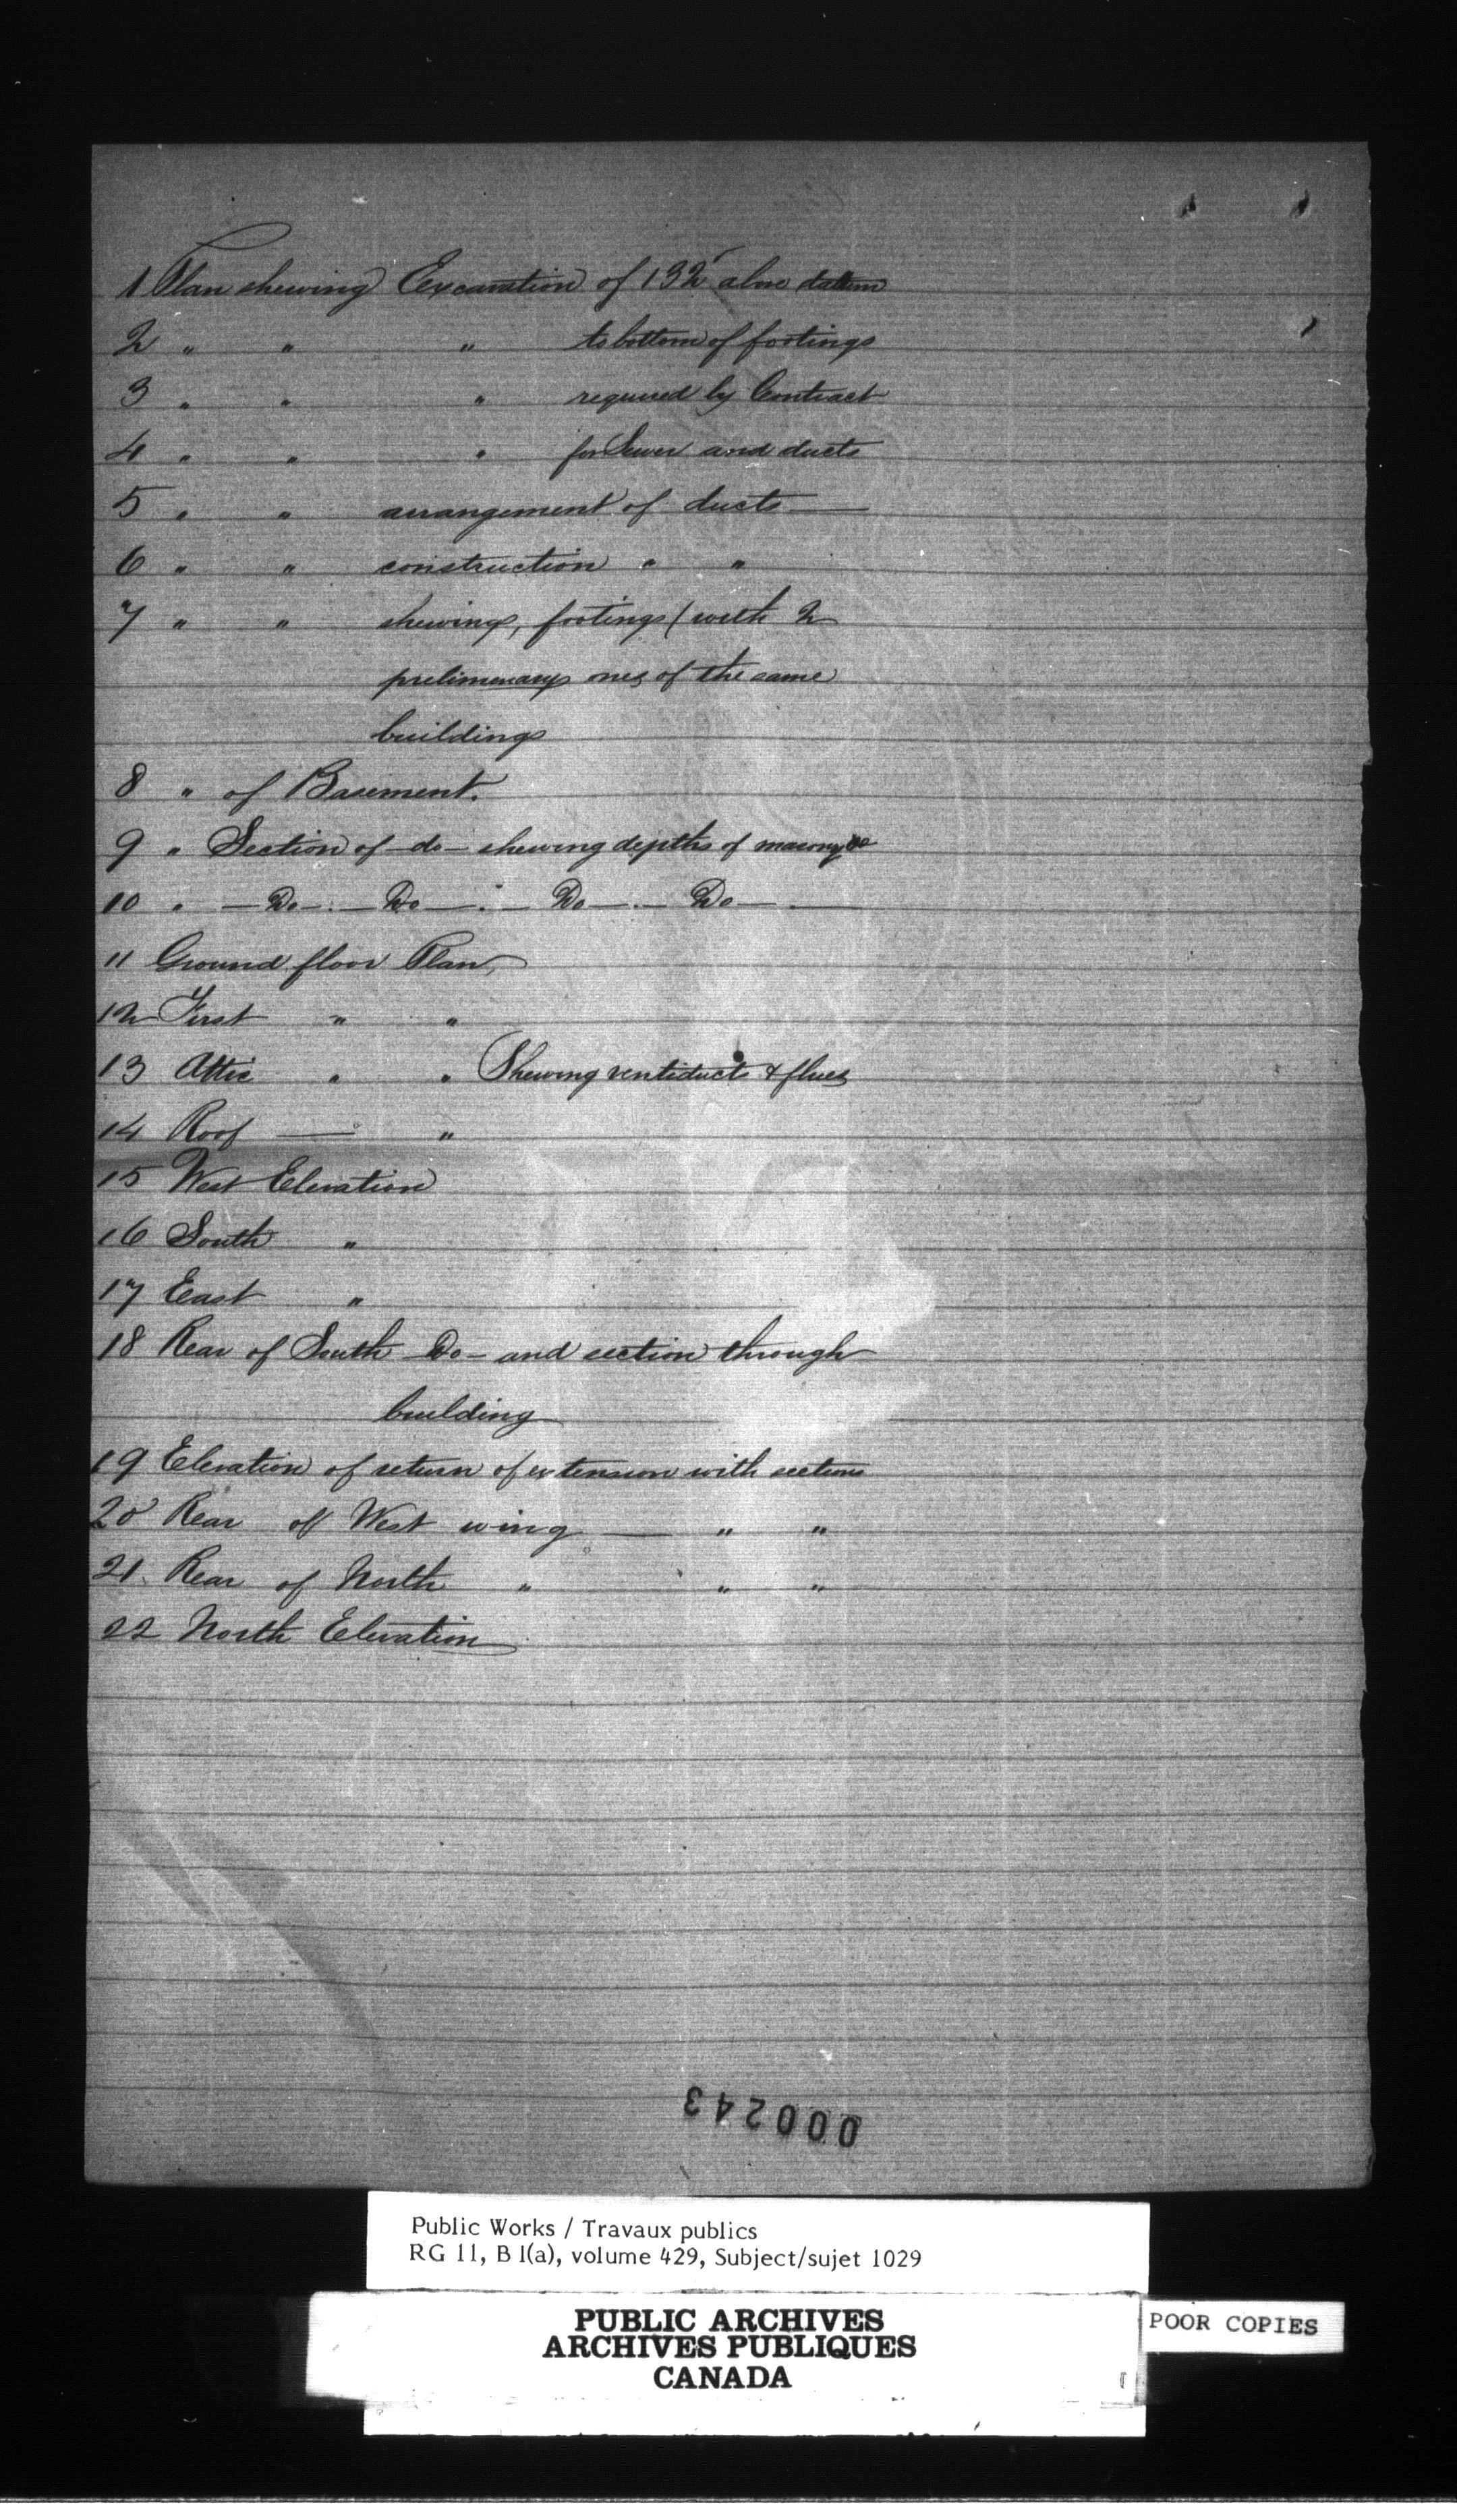 1 Plan shewing Excavation of 132' above datum
2 " " " to bottom of footings
3 " " " required by Contract
4 " " " for Sewer and ducts
5 " " arrangement of ducts —
6 " " construction " "
7 " " shewing, footings (with 2
preliminary ones of the same
buildings
8 " of Basement.
9 " Section of - do - shewing depths of masonry &c
10 " — Do — Do — Do — Do —
11 Ground floor Plan,
12 First " "
13 Attic " " Shewing ventiducts & flues
14 Roof — "
15 West Elevation
16 South "
17 East "
18 Rear of South - Do - and section through
building
19 Elevation of return of extension with sections
20 Rear of West wing — " "
21 Rear of North " " "
22 North Elevation
000243
Public Works / Travaux publics
RG 11, B 1(a), volume 429, Subject/sujet 1029
PUBLIC ARCHIVES
ARCHIVES PUBLIQUES
CANADA
POOR COPIES